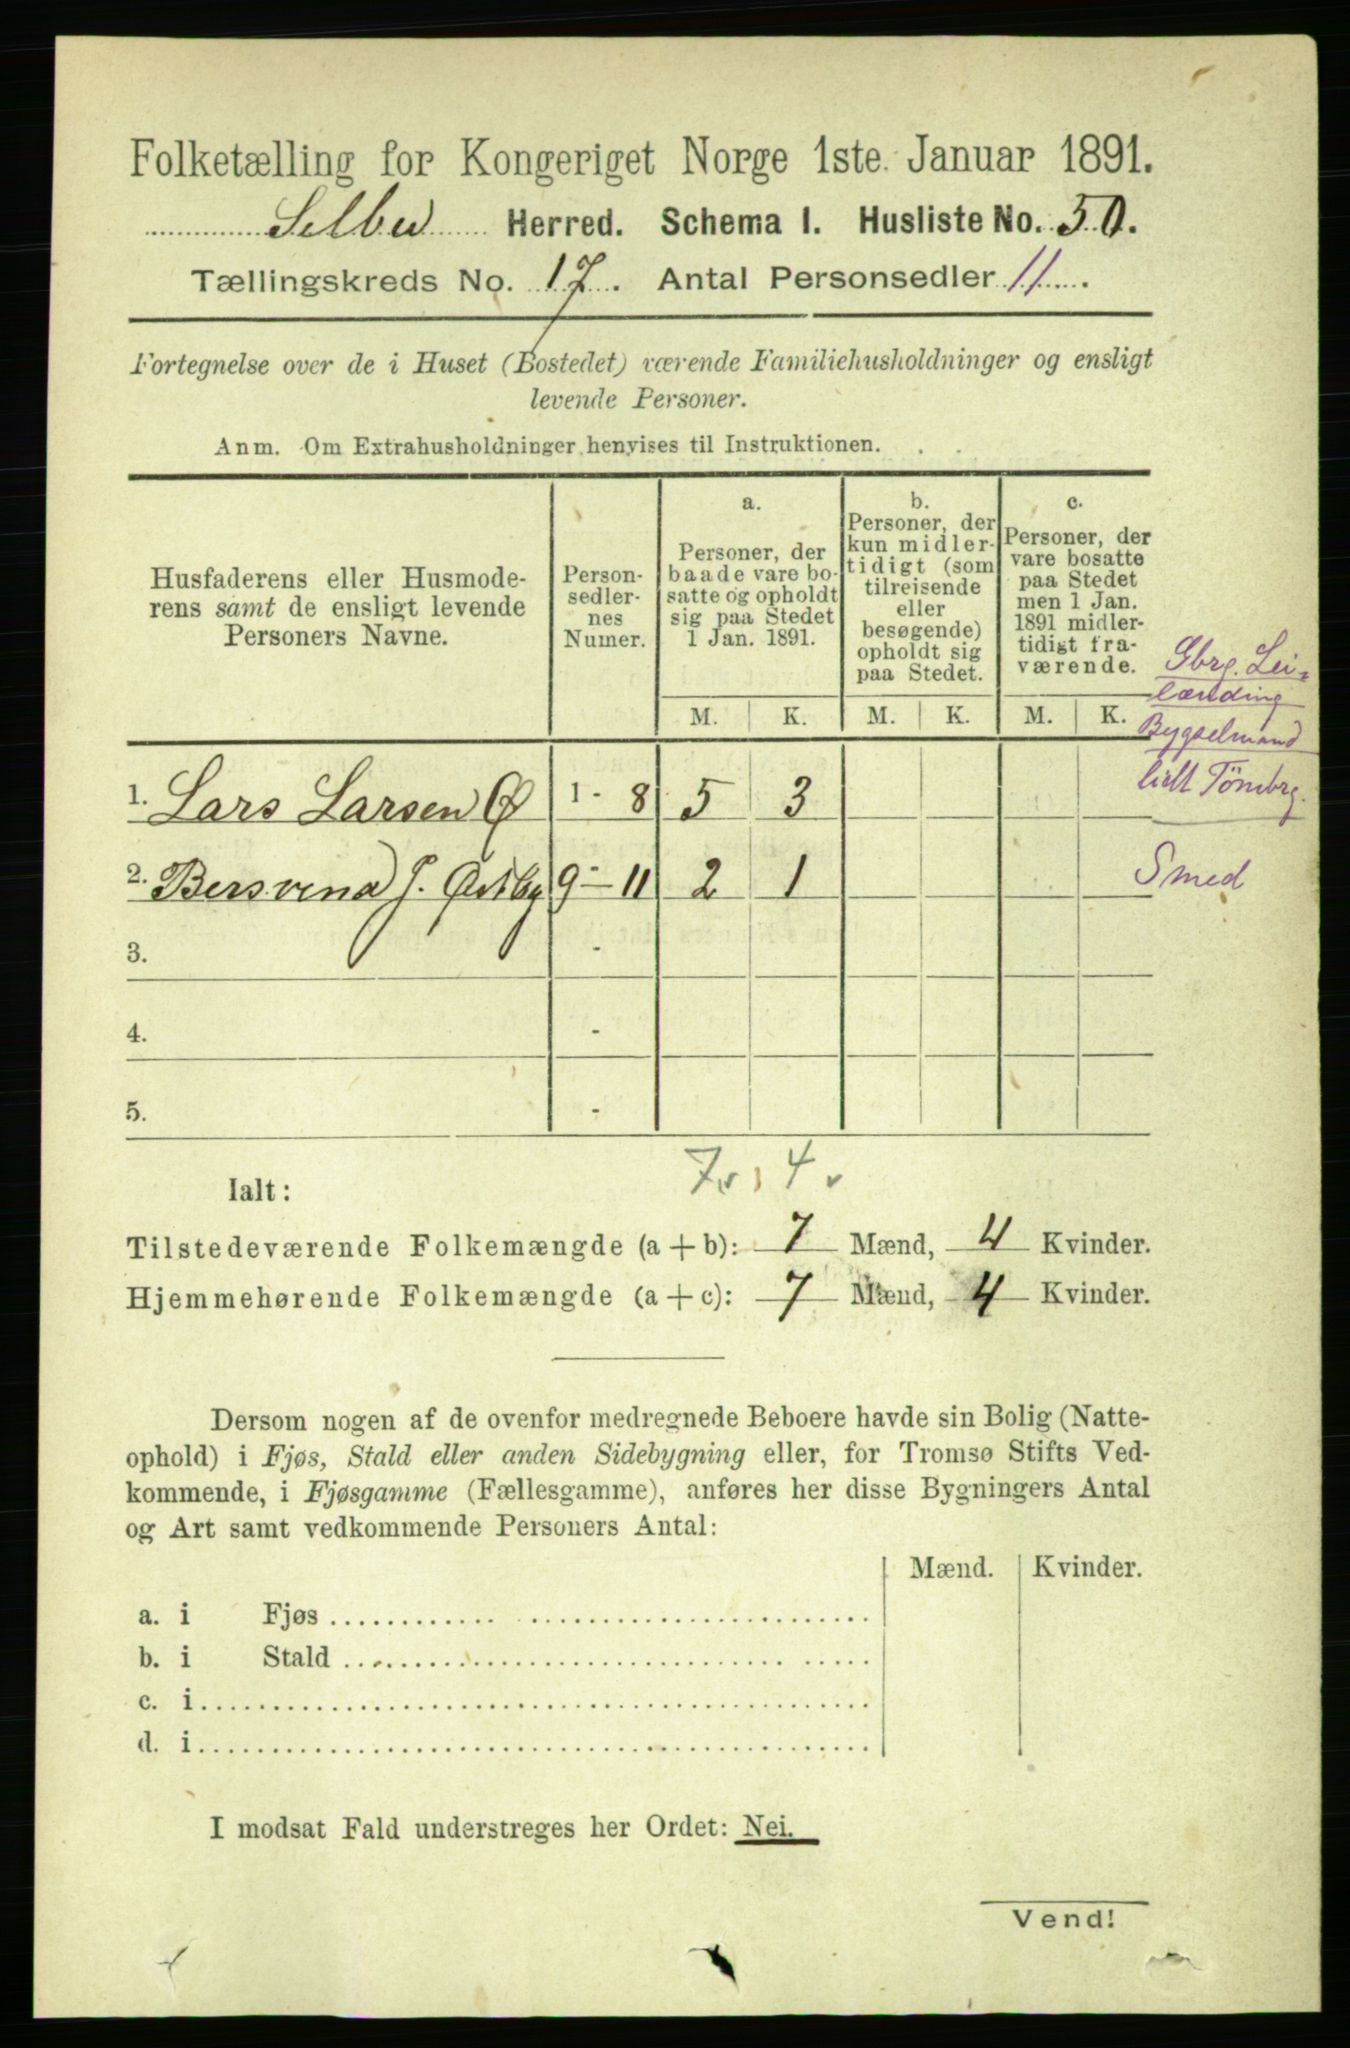 Folketælling for Kongeriget Norge 1ste Januar 1891.
Selbu Herred. Schema I. Husliste No. 50.
Tællingskreds No. 17. Antal Personsedler 11.
Fortegnelse over de i Huset (Bostedet) værende Familiehusholdninger og ensligt
levende Personer.
Anm. Om Extrahusholdninger henvises til Instruktionen.
Husfaderens eller Husmode-
rens samt de ensligt levende
Personers Navne.
Person-
sedler-
nes
Numer.
a.
Personer, der
baade vare bo-
satte og opholdt
sig paa Stedet
1 Jan. 1891.
b.
Personer, der
kun midler-
tidigt (som
tilreisende
eller
besøgende)
opholdt sig
paa Stedet.
c.
Personer, der
vare bosatte
paa Stedet
men 1 Jan.
1891 midler-
tidigt fra-
værende.
M. K. M. K. M. K.
Gbrg. Lei-
lænding
Bygselmand
lidt Tömbrg.
1. Lars Larsen Ø 1 - 8 5 3
2. Bersvend J. Østby 9 - 11 2 1 Smed
3. -
4. -
5. -
7 4
Ialt:
Tilstedeværende Folkemængde (a + b): 7 Mænd, 4 Kvinder.
Hjemmehørende Folkemængde (a + c): 7 Mænd, 4 Kvinder.
Dersom nogen af de ovenfor medregnede Beboere havde sin Bolig (Natte-
ophold) i Fjøs, Stald eller anden Sidebygning eller, for Tromsø Stifts Ved-
kommende, i Fjøsgamme (Fællesgamme), anføres her disse Bygningers Antal
og Art samt vedkommende Personers Antal:
Mænd. Kvinder.
a. i Fjøs
b. i Stald
c. i
d. i
I modsat Fald understreges her Ordet: Nei.
Vend!